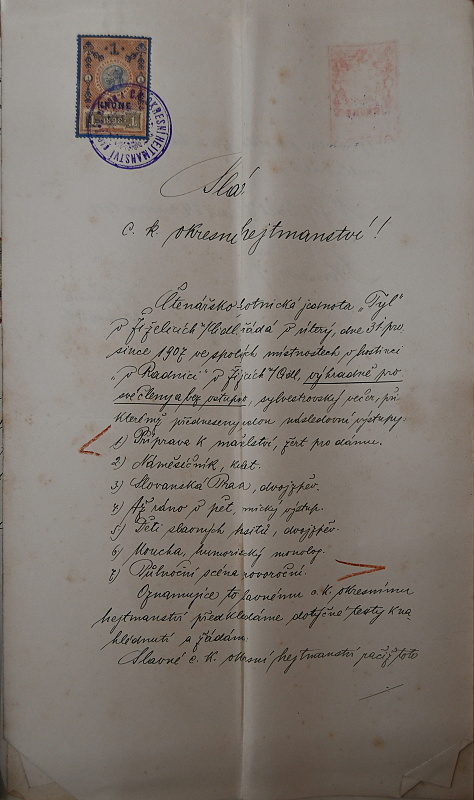 1
KRONE
1 1898 1
C. K. OKRESNÍ HEJTMANSTVÍ
c. k. okresní hejtmanství!
Čtenářsko-ochotnická jednota „Tyl"
v
řádá v úterý, dne 31. pro-
since 1907 ve spolk. místnostech v hostinci
„v Radnici" v výhradně pro
své členy a bez vstupeb, sylvestrovský večer, při
kterémž předneseny jsou následovní výstupy.
1) Příprava k manželství, žert pro dámu.
2) Náměsíčník, kat.
3) Slovanská Praha, dvojzpěv.
4) Až ráno v pět, výstup.
5) Děti slavných husitů, dvojzpěv.
6) Moucha, humoristický monolog.
7) Půlnoční scéna novoroční.
Oznamujíce to slavnému c. k. okresnímu
hejtmanství předkládáme dotyčné texty k na-
hlédnutí a žádáme
Slavné c. k. okresní hejtmanství račiž toto